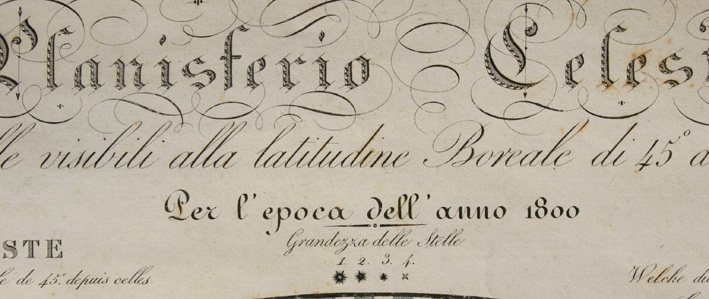 Planisferio Celest
le visibili alla latitudine Boreale di 45° d
Per l'epoca dell'anno 1800
STE
Grandezza delle Stelle
1. 2. 3. 4.
le de 45.° depuis celles
Welche di